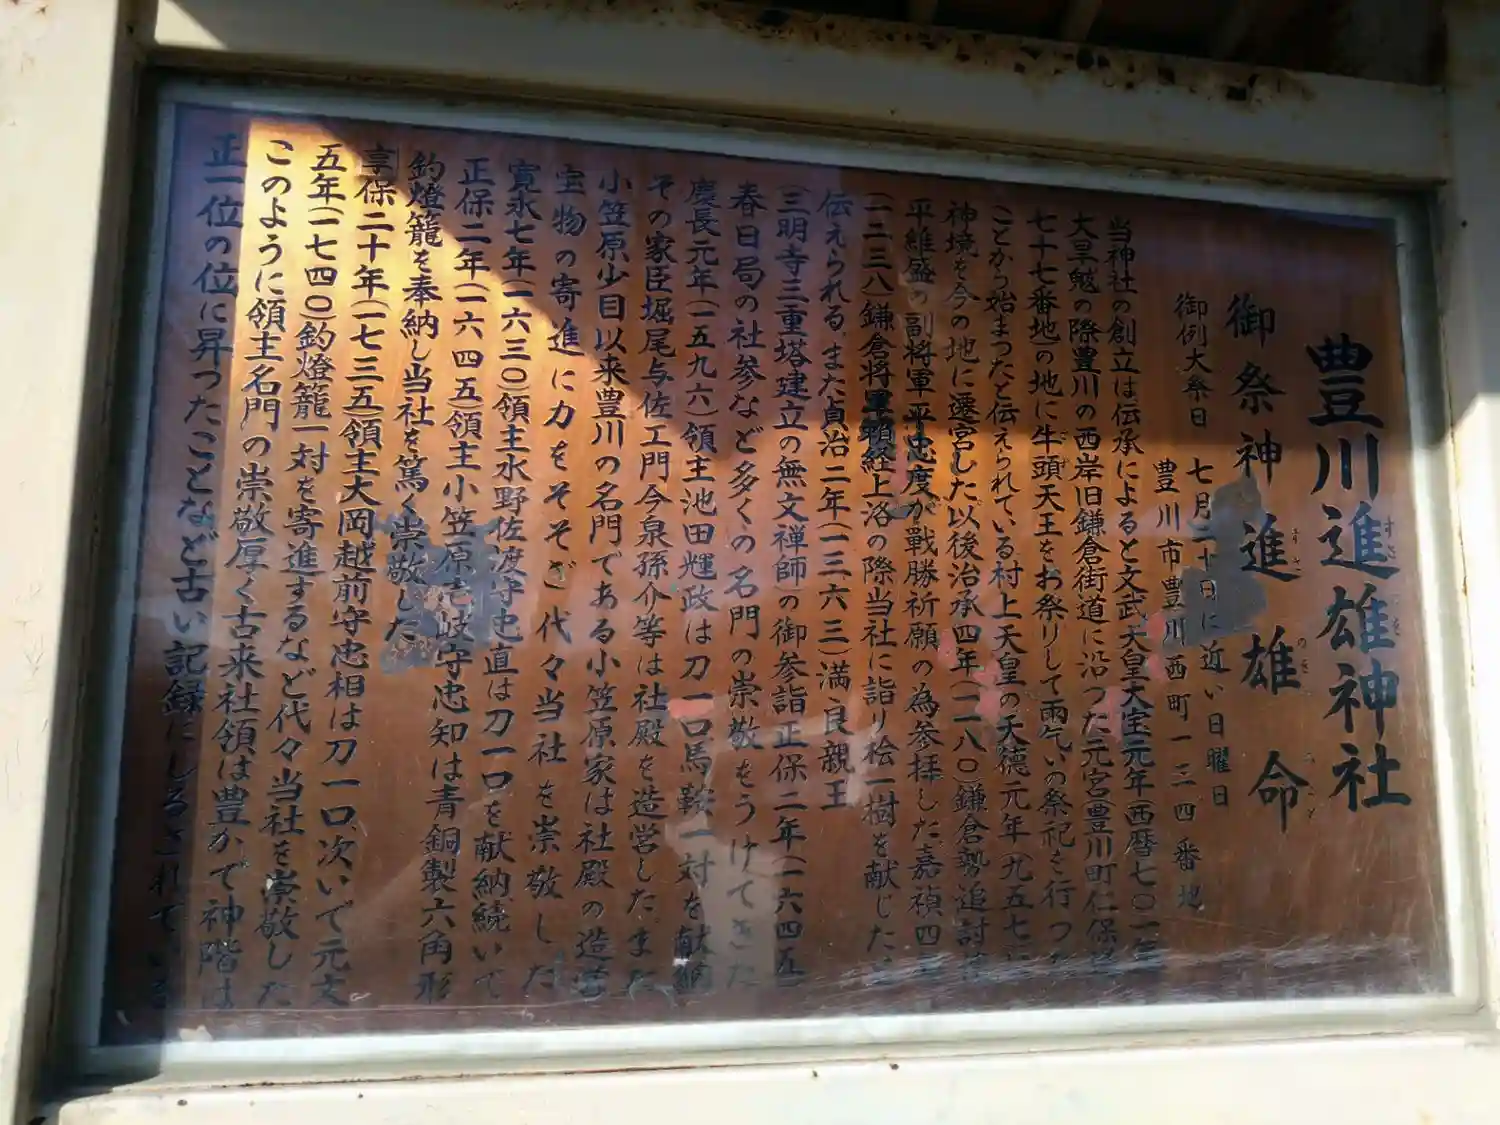 豊川進雄神社
すさ のを
御祭神 進雄命
すさ のを みこと
御例大祭日 七月二十日に近い日曜日
豊川市豊川西町一二四番地
当神社の創立は伝承によると文武天皇大宝元年(西暦七〇一年
大旱魃の際豊川の西岸旧鎌倉街道に沿った元宮(豊川町仁保
七十七番地の地に牛頭天王をお祭りして雨乞いの祭祀を行った
ことから始まったと伝えられている村上天皇の天徳元年(九五七
神境を今の地に遷宮した以後治承四年(一一八〇)鎌倉勢追討
平維盛の副将軍平忠度が戦勝祈願の為参拝した嘉禎四
(一二三八鎌倉将軍頼経上洛の際当社に詣り桧一樹を献じたと
伝えられる、また貞治二年(一三六三)満良親王
(三明寺三重塔建立の無文禅師)の御参詣正保二年(一六四五
春日局の社参など多くの名門の崇敬をうけてきた
慶長元年(一五九六)領主池田輝政は刀一口馬鞍一対を献納
その家臣堀尾与佐工門今泉孫介等は社殿を造営した、また
小笠原少目以来豊川の名門である小笠原家は社殿の造営
宝物の寄進に力をそそぎ代々当社を崇敬した
寛永七年(一六三〇)領主水野佐渡守忠直は刀一口を献納続いて
正保二年(一六四五)領主小笠原壱岐守忠知は青銅製六角形
釣燈籠を奉納し当社を篤く崇敬した
享保二十年(一七三五)領主大岡越前守忠相は刀一口、次いで元文
五年(一七四〇)釣燈籠一対を寄進するなど代々当社を崇敬した
このように領主名門の崇敬厚く古来社領は豊かで神階は
正一位の位に昇ったことなど古い記録にしるされている